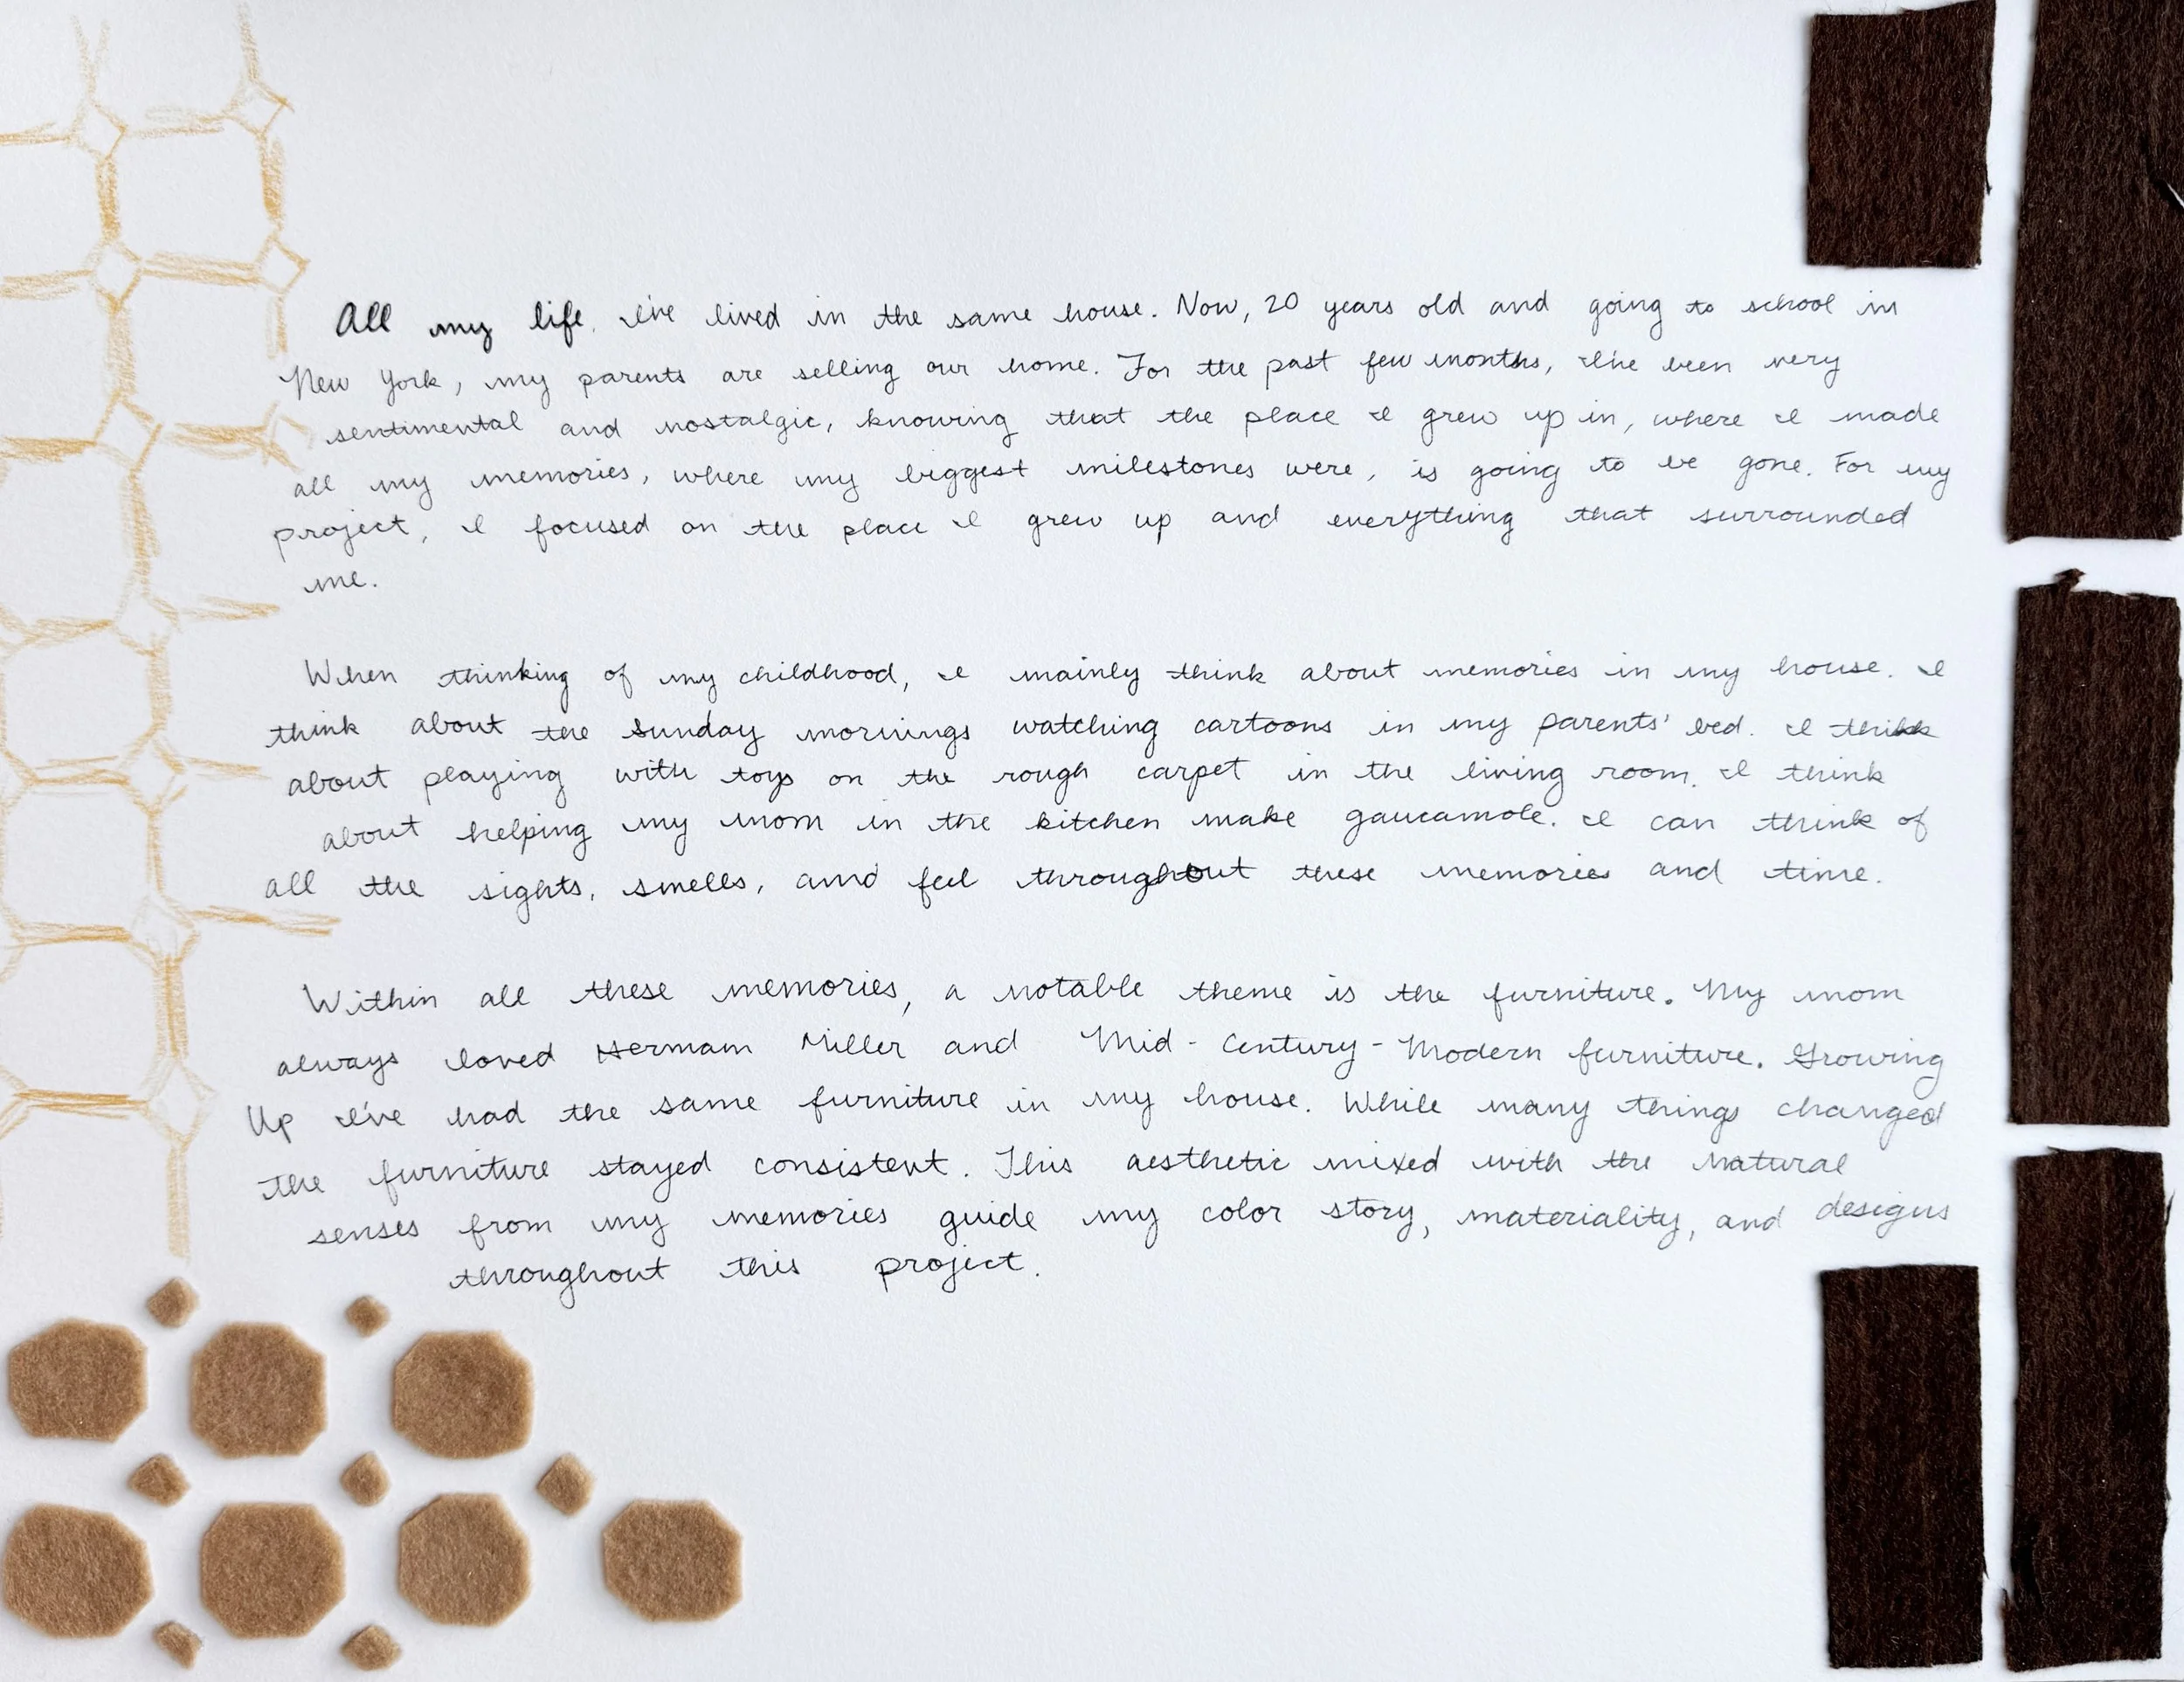 All my life, I've lived in the same house. Now, 20 years old and going to school in
New York, my parents are selling our home. For the past few months, I've been very
sentimental and nostalgic, knowing that the place I grew up in, where I made
all my memories, where my biggest milestones were, is going to be gone. For my
project, I focused on the place I grew up and everything that surrounded
me.
When thinking of my childhood, I mainly think about memories in my house. I
think about the Sunday mornings watching cartoons in my parents' bed. I think
about playing with toys on the rough carpet in the living room. I think
about helping my mom in the kitchen make gaucamole. I can think of
all the sights, smells, and feel throughout these memories and time.
Within all these memories, a notable theme is the furniture. My mom
always loved Hermam Miller and Mid-Century-Modern furniture. Growing
Up I've had the same furniture in my house. While many things changed
the furniture stayed consistent. This aesthetic mixed with the natural
senses from my memories guide my color story, materiality, and designs
throughout this project.